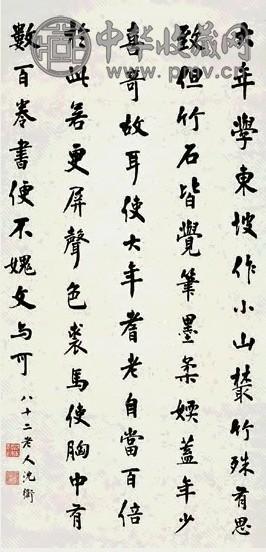 大年學東坡作小山叢竹殊有思
致但竹石皆覺筆墨柔嫩蓋年少
喜奇故耳使大年耆老自當百倍
於此若更屏聲色裘馬使胸中有
數百卷書便不愧文與可
八十二老人沈衛
中华收藏网